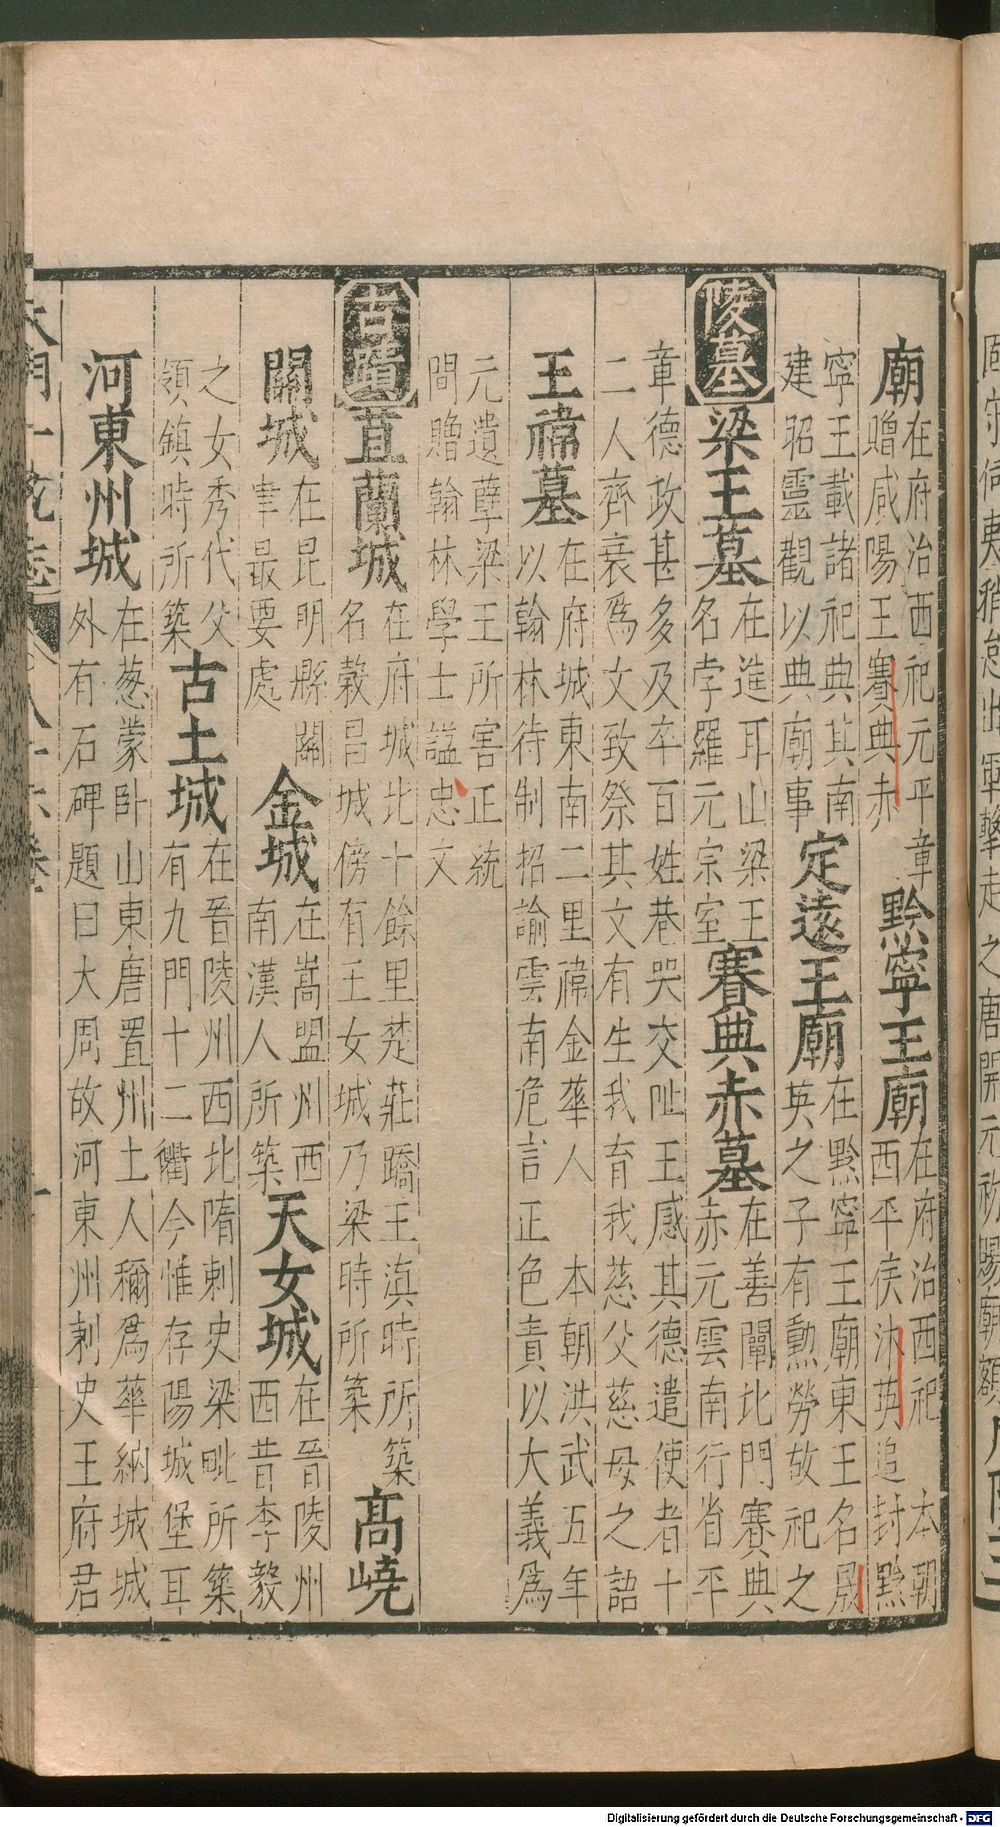 廟在府治西祀元平章贈咸陽王賽典赤 黔寧王廟在府治西祀 本朝西平侯沐英追封黔
寧王載諸祀典其南建昭靈觀以典廟事 定遠王廟在黔寧王廟東王名晟英之子有勲勞故祀之
陵墓 梁王墓在進耳山梁王名孛羅元宗室 賽典赤墓在善闡北門賽典赤元雲南行省平
章德政甚多及卒百姓巷哭交阯王感其德遣使者十二人齊衰爲文致祭其文有生我育我慈父慈母之語
王禕墓在府城東南二里禕金華人 本朝洪武五年以翰林待制招諭雲南危言正色責以大義爲
元遺孽梁王所害正統間贈翰林學士謚忠文
古蹟 苴蘭城在府城北十餘里楚莊蹻王滇時所築名榖昌城傍有王女城乃梁時所築 高嶢
關城在昆明縣關津最要處 金城在嵩盟州西南漢人所築 天女城在晉陵州西昔李毅
之女秀代父領鎮時所築 古土城在晉陵州西北隋刺史梁毗所築有九門十二衢今惟存陽城堡耳
河東州城在葱蒙卧山東唐置州土人稱爲華納城城外有石碑題曰大周故河東州刺史王府君
大明一統志 卷八十六
Digitalisierung gefördert durch die Deutsche Forschungsgemeinschaft - DFG